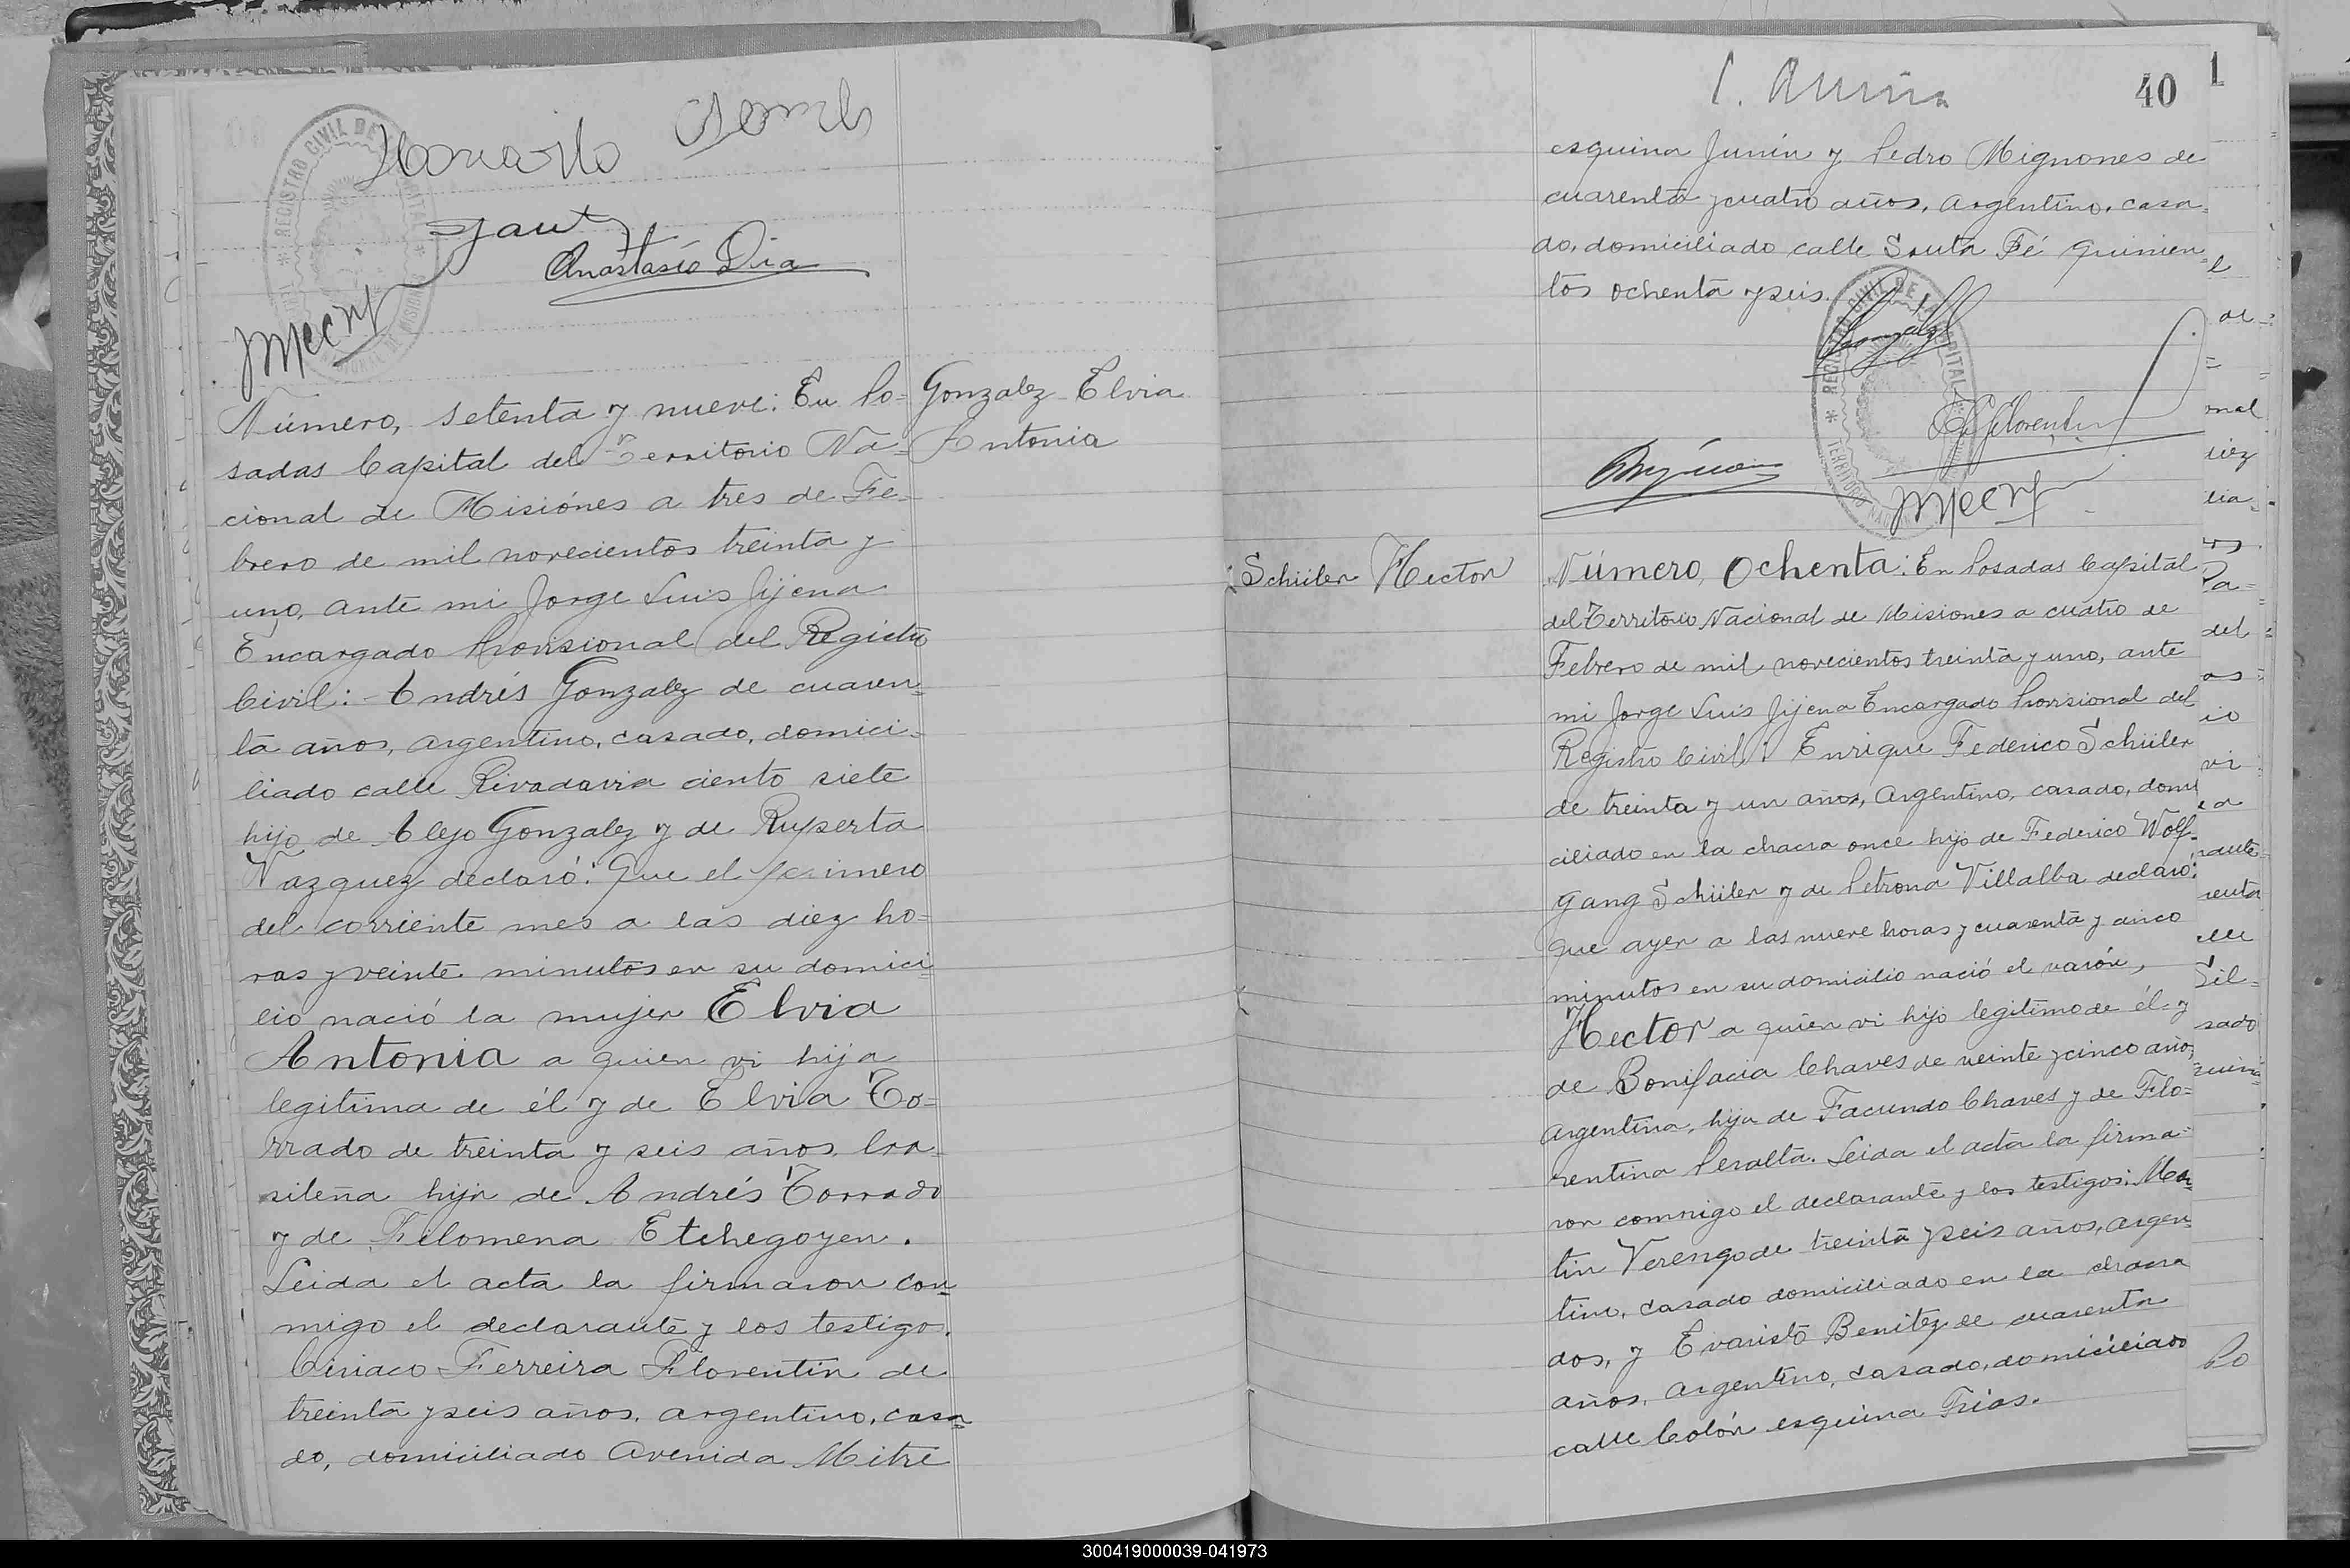 Anastasio Dia
REGISTRO CIVIL DE
Número, setenta y nueve: En Po=
sadas Capital del Territorio Na=
cional de Misiónes a tres de Fe=
brero de mil novecientos treinta y
uno, ante mi Jorge Luis Jijena
Encargado Provisional del Registro
Civil: - Andrés Gonzalez de cuaren=
ta años, argentino, casado, domici=
liado calle Rivadavia ciento siete
hijo de Alejo Gonzalez y de Ruperta
Vazquez declaró: Que el primero
del corriente mes a las diez ho=
ras y veinte minutos en su domici=
lio nació la mujer Elvia
Antonia a quien vi hija
legitima de él y de Elvia To=
rrado de treinta y seis años, bra=
sileña hija de Andrés Torrado
y de Filomena Etchegoyen.
Leida el acta la firmaron con=
migo el declarante y los testigo.
Ciriaco Ferreira Florentin de
treinta y seis años, argentino, casa=
do, domiciliado Avenida Mitre
Gonzalez Elvia
Antonia
40
1
esquina Junín y Pedro Mignones de
cuarenta y cuatro años, argentino, casa=
do, domiciliado calle Santa Fé quinien=
tos ochenta y seis.
REGISTRO CIVIL DE LA CAPITAL
Schüler Hector
Número, Ochenta: En Posadas Capital
del Territorio Nacional de Misiones a cuatro de
Febrero de mil novecientos treinta y uno, ante
mi Jorge Luis Jijena Encargado Provisional del
Registro Civil: Enrique Federico Schüler
de treinta y un años, argentino, casado, domi
ciliado en la chacra once hijo de Federico Wolf=
gang Schüler y de Petrona Villalba declaró:
Que ayer a las nueve horas y cuarenta y cinco
minutos en su domicilio nació el varón,
Hector a quien vi hijo legitimo de él y
de Bonifacia Chaves de veinte y cinco años,
argentina, hija de Facundo Chaves y de Flo=
rentina Peralta. Leida el acta la firma=
ron conmigo el declarante y los testigos: Mar=
tin Verengo de treinta y seis años, argen=
tino, casado domiciliado en la chacra
dos, y Evaristo Benitez de cuarenta
años, argentino, casado, domiciliado
calle Colón esquina Frias.
300419000039-041973